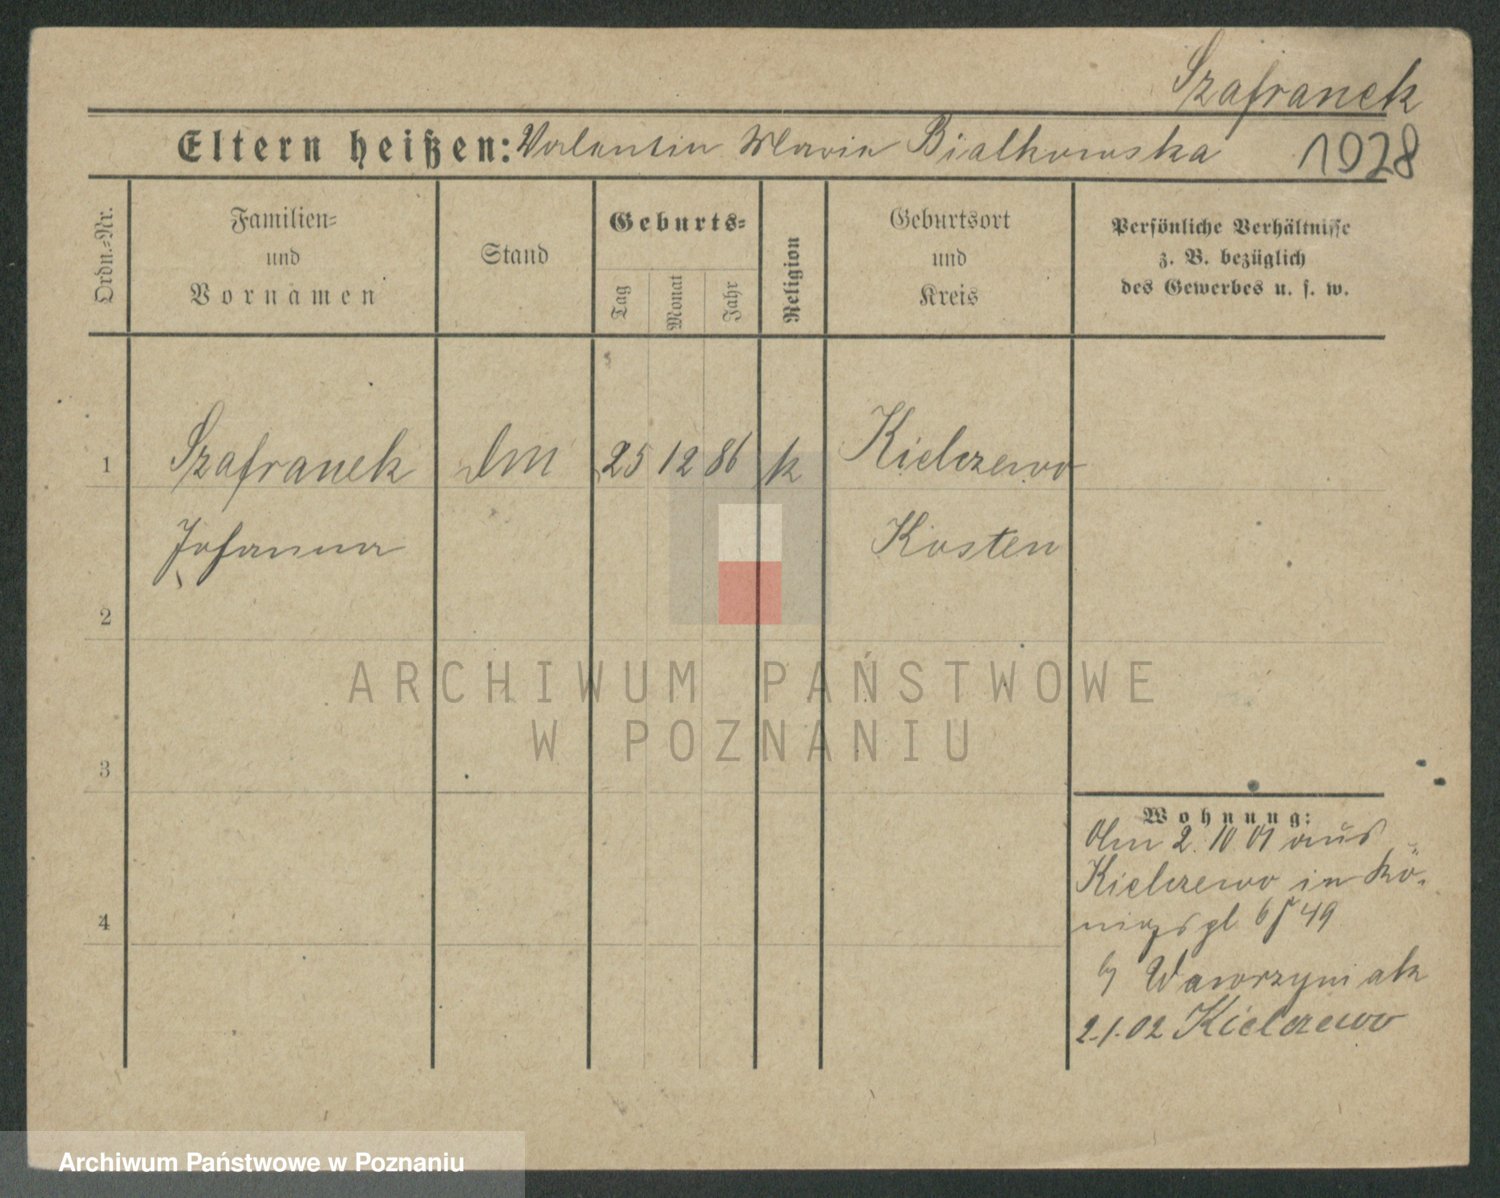 Szafranek
Eltern heißen: Valentin Maria Bialkowska 1928
Ordn.-Nr.
Familien-
und
Vornamen
Stand
Geburts-
Tag
Monat
Jahr
Religion
Geburtsort
und
Kreis
Persönliche Verhältnisse
z. B. bezüglich
des Gewerbes u. s. w.
1 Szafranek Dm 25 12 86 k Kielczewo
Johanna Kosten
2
3
4
Wohnung:
Am 2. 10 01 aus
Kielczewo in Kö-
nigspl
b/ Waworzyniak
2.1.02 Kielczewo
ARCHIWUM PAŃSTWOWE
W POZNANIU
Archiwum Państwowe w Poznaniu